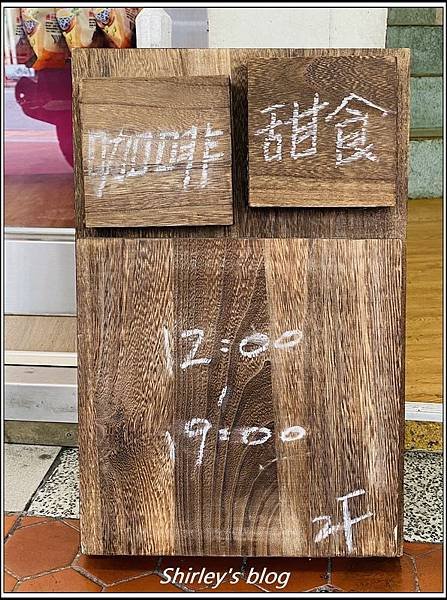 咖啡 甜食
12:00
,
19:00
2F
Shirley's blog